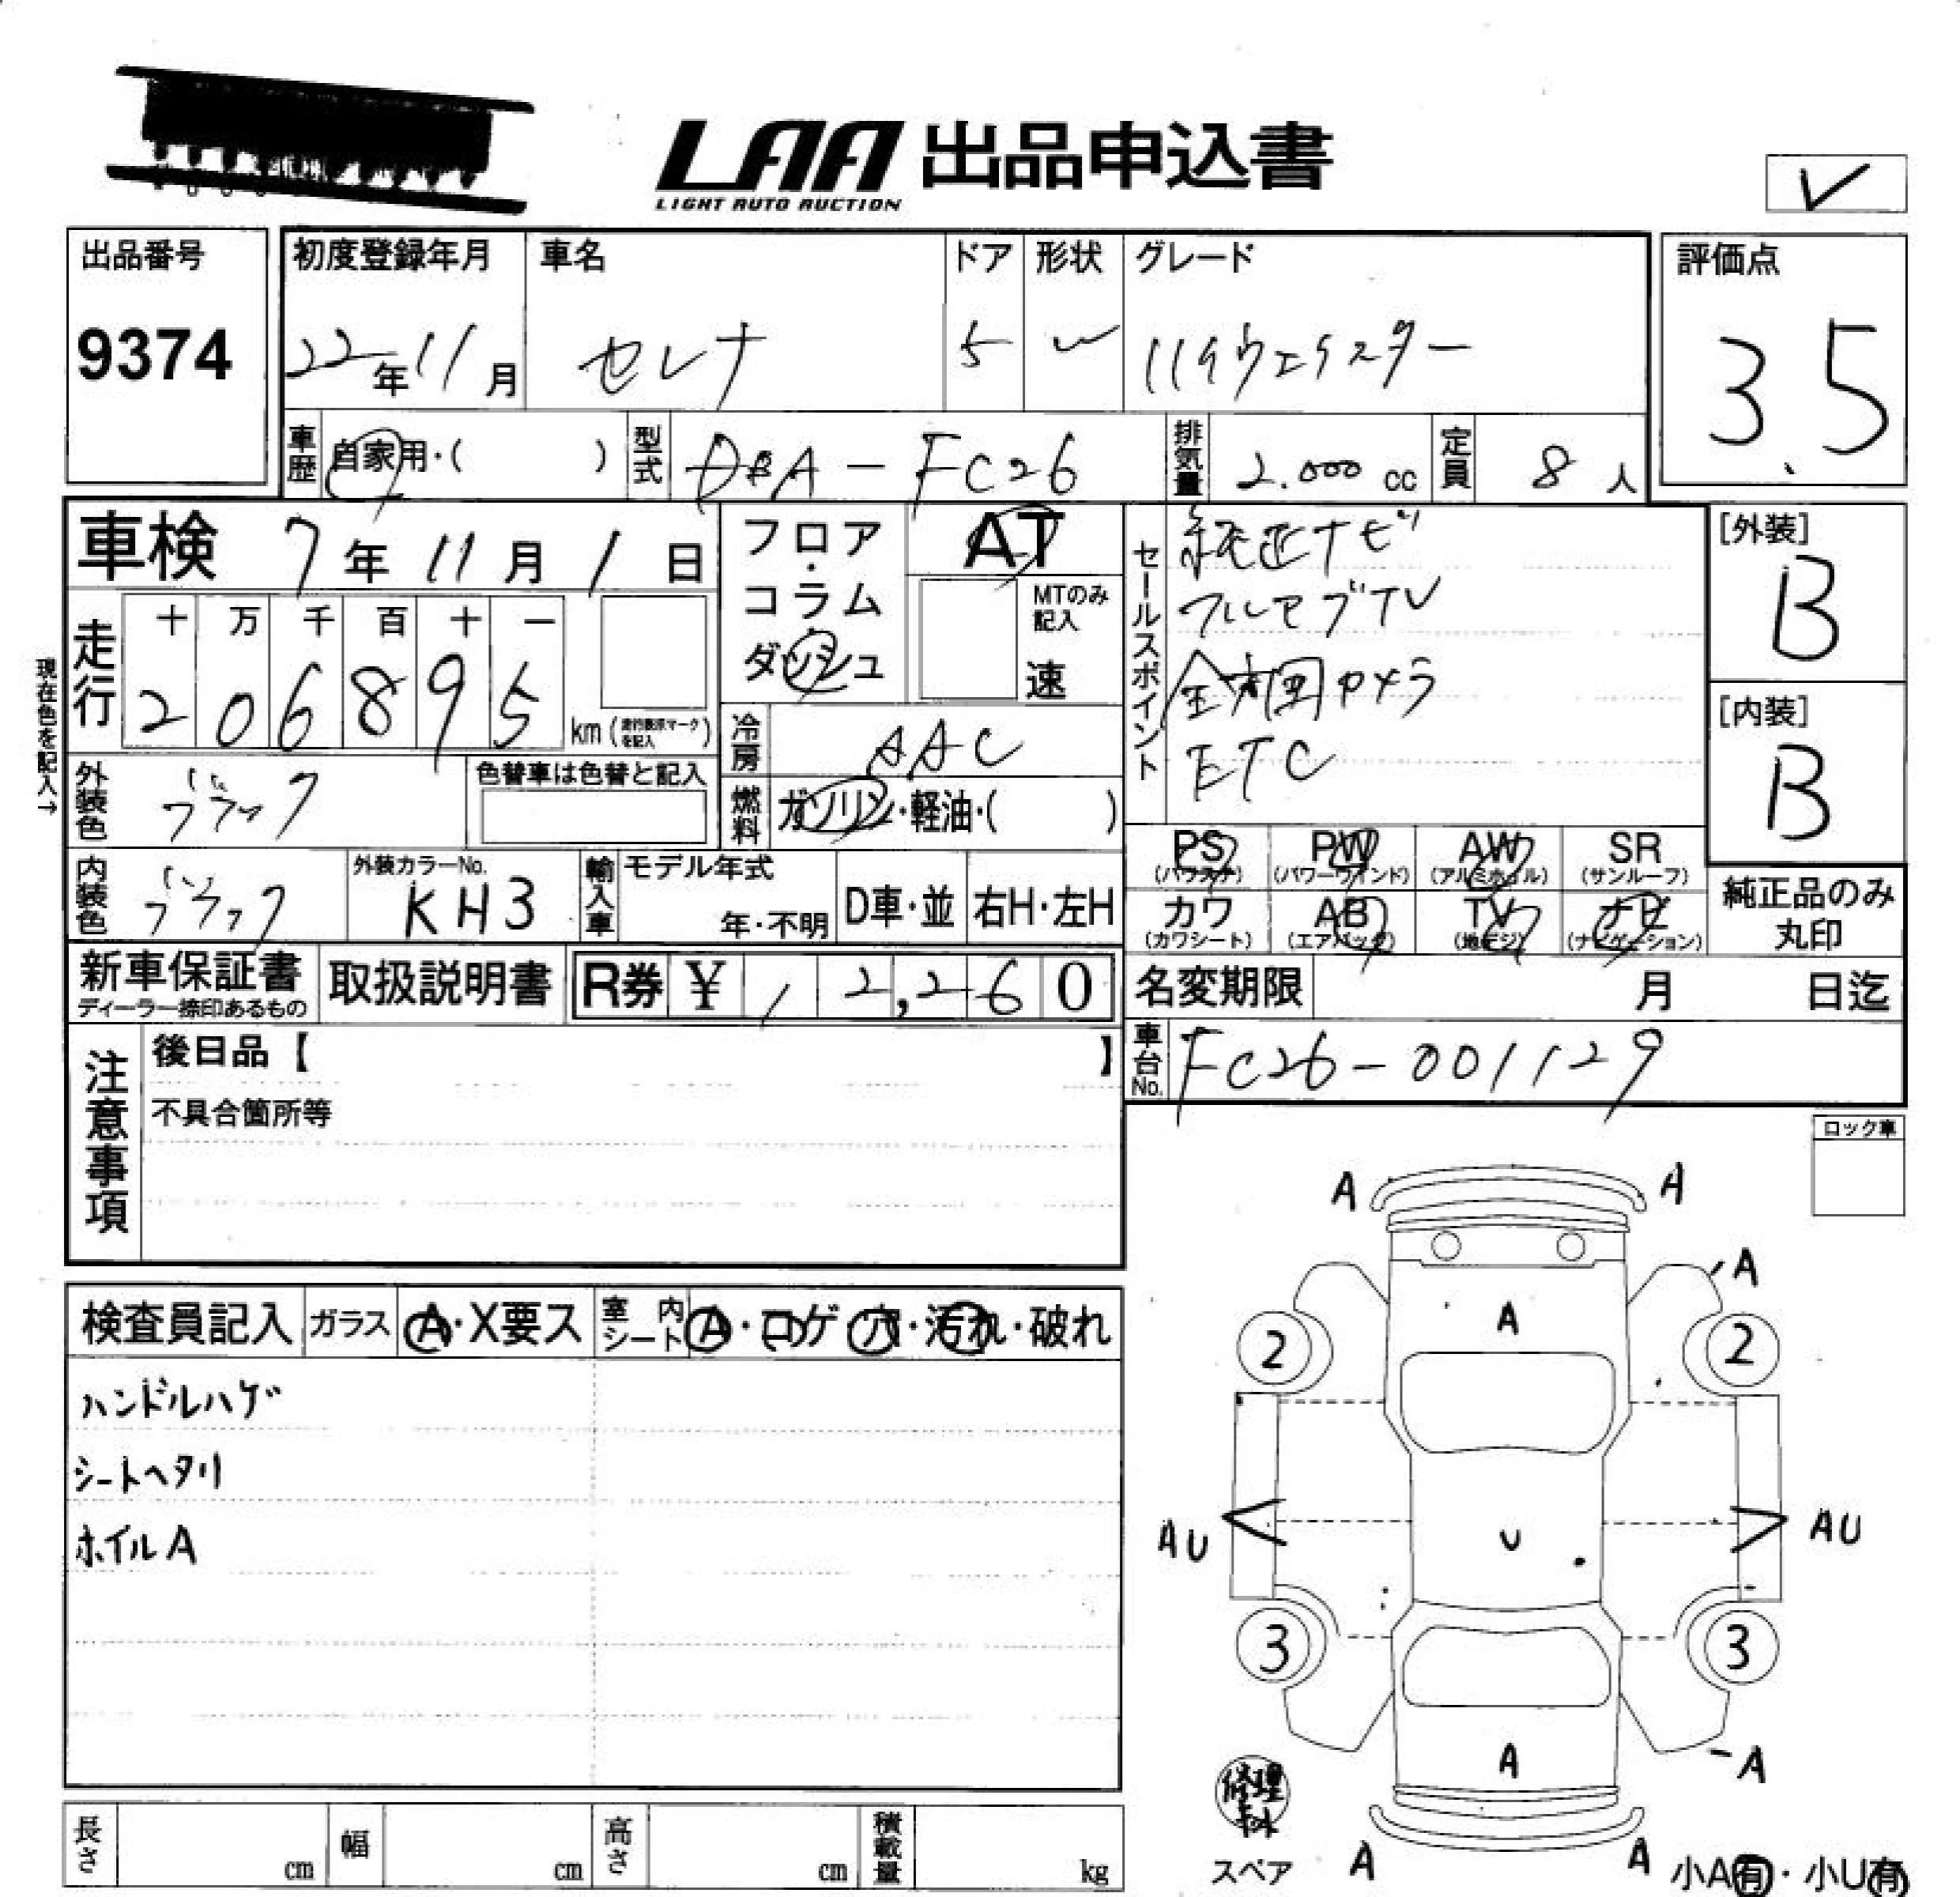 LAA 出品申込書
LIGHT AUTO AUCTION
出品番号
9374
初度登録年月
22年11月
車名
セレナ
ドア
5
形状
グレード
ハイウェイスター
評価点
3.5
車歴
自家用・( )
型式
DBA-FC26
排気量
2.000 cc
定員
8 人
車検 7年11月1日
フロア・コラム・ダッシュ
AT
MTのみ記入
速
走行
十 万 千 百 十 一
2 0 6 8 9 5
km (走行表示マークを記入)
現在色を記入→
冷房
AAC
外装色
ブラック
色替車は色替と記入
燃料
ガソリン・軽油・( )
セールスポイント
純正ナビ
フルセグTV
全方囲カメラ
ETC
[外装]
B
[内装]
B
内装色
ブラック
外装カラーNo.
KH3
輸入車
モデル年式
年・不明
D車・並
右H・左H
PS (パワステ)
PW (パワーウインド)
AW (アルミホイル)
SR (サンルーフ)
カワ (カワシート)
AB (エアバック)
TV (地デジ)
ナビ (ナビゲーション)
純正品のみ
丸印
新車保証書
ディーラー捺印あるもの
取扱説明書
R券 ¥ 1 2,260
名変期限 月 日迄
車台No.
FC26-001129
注意事項
後日品【 】
不具合箇所等
ロック車
検査員記入
ガラス
A・X要ス
室内シート
A・コゲ・穴・汚れ・破れ
ハンドルハゲ
シートヘタリ
ホイルA
A A
A
A
2 2
AU U AU
3 3
A
A
修理キット
スペア
A A
小A有・小U有
長さ cm
幅 cm
高さ cm
積載量 kg